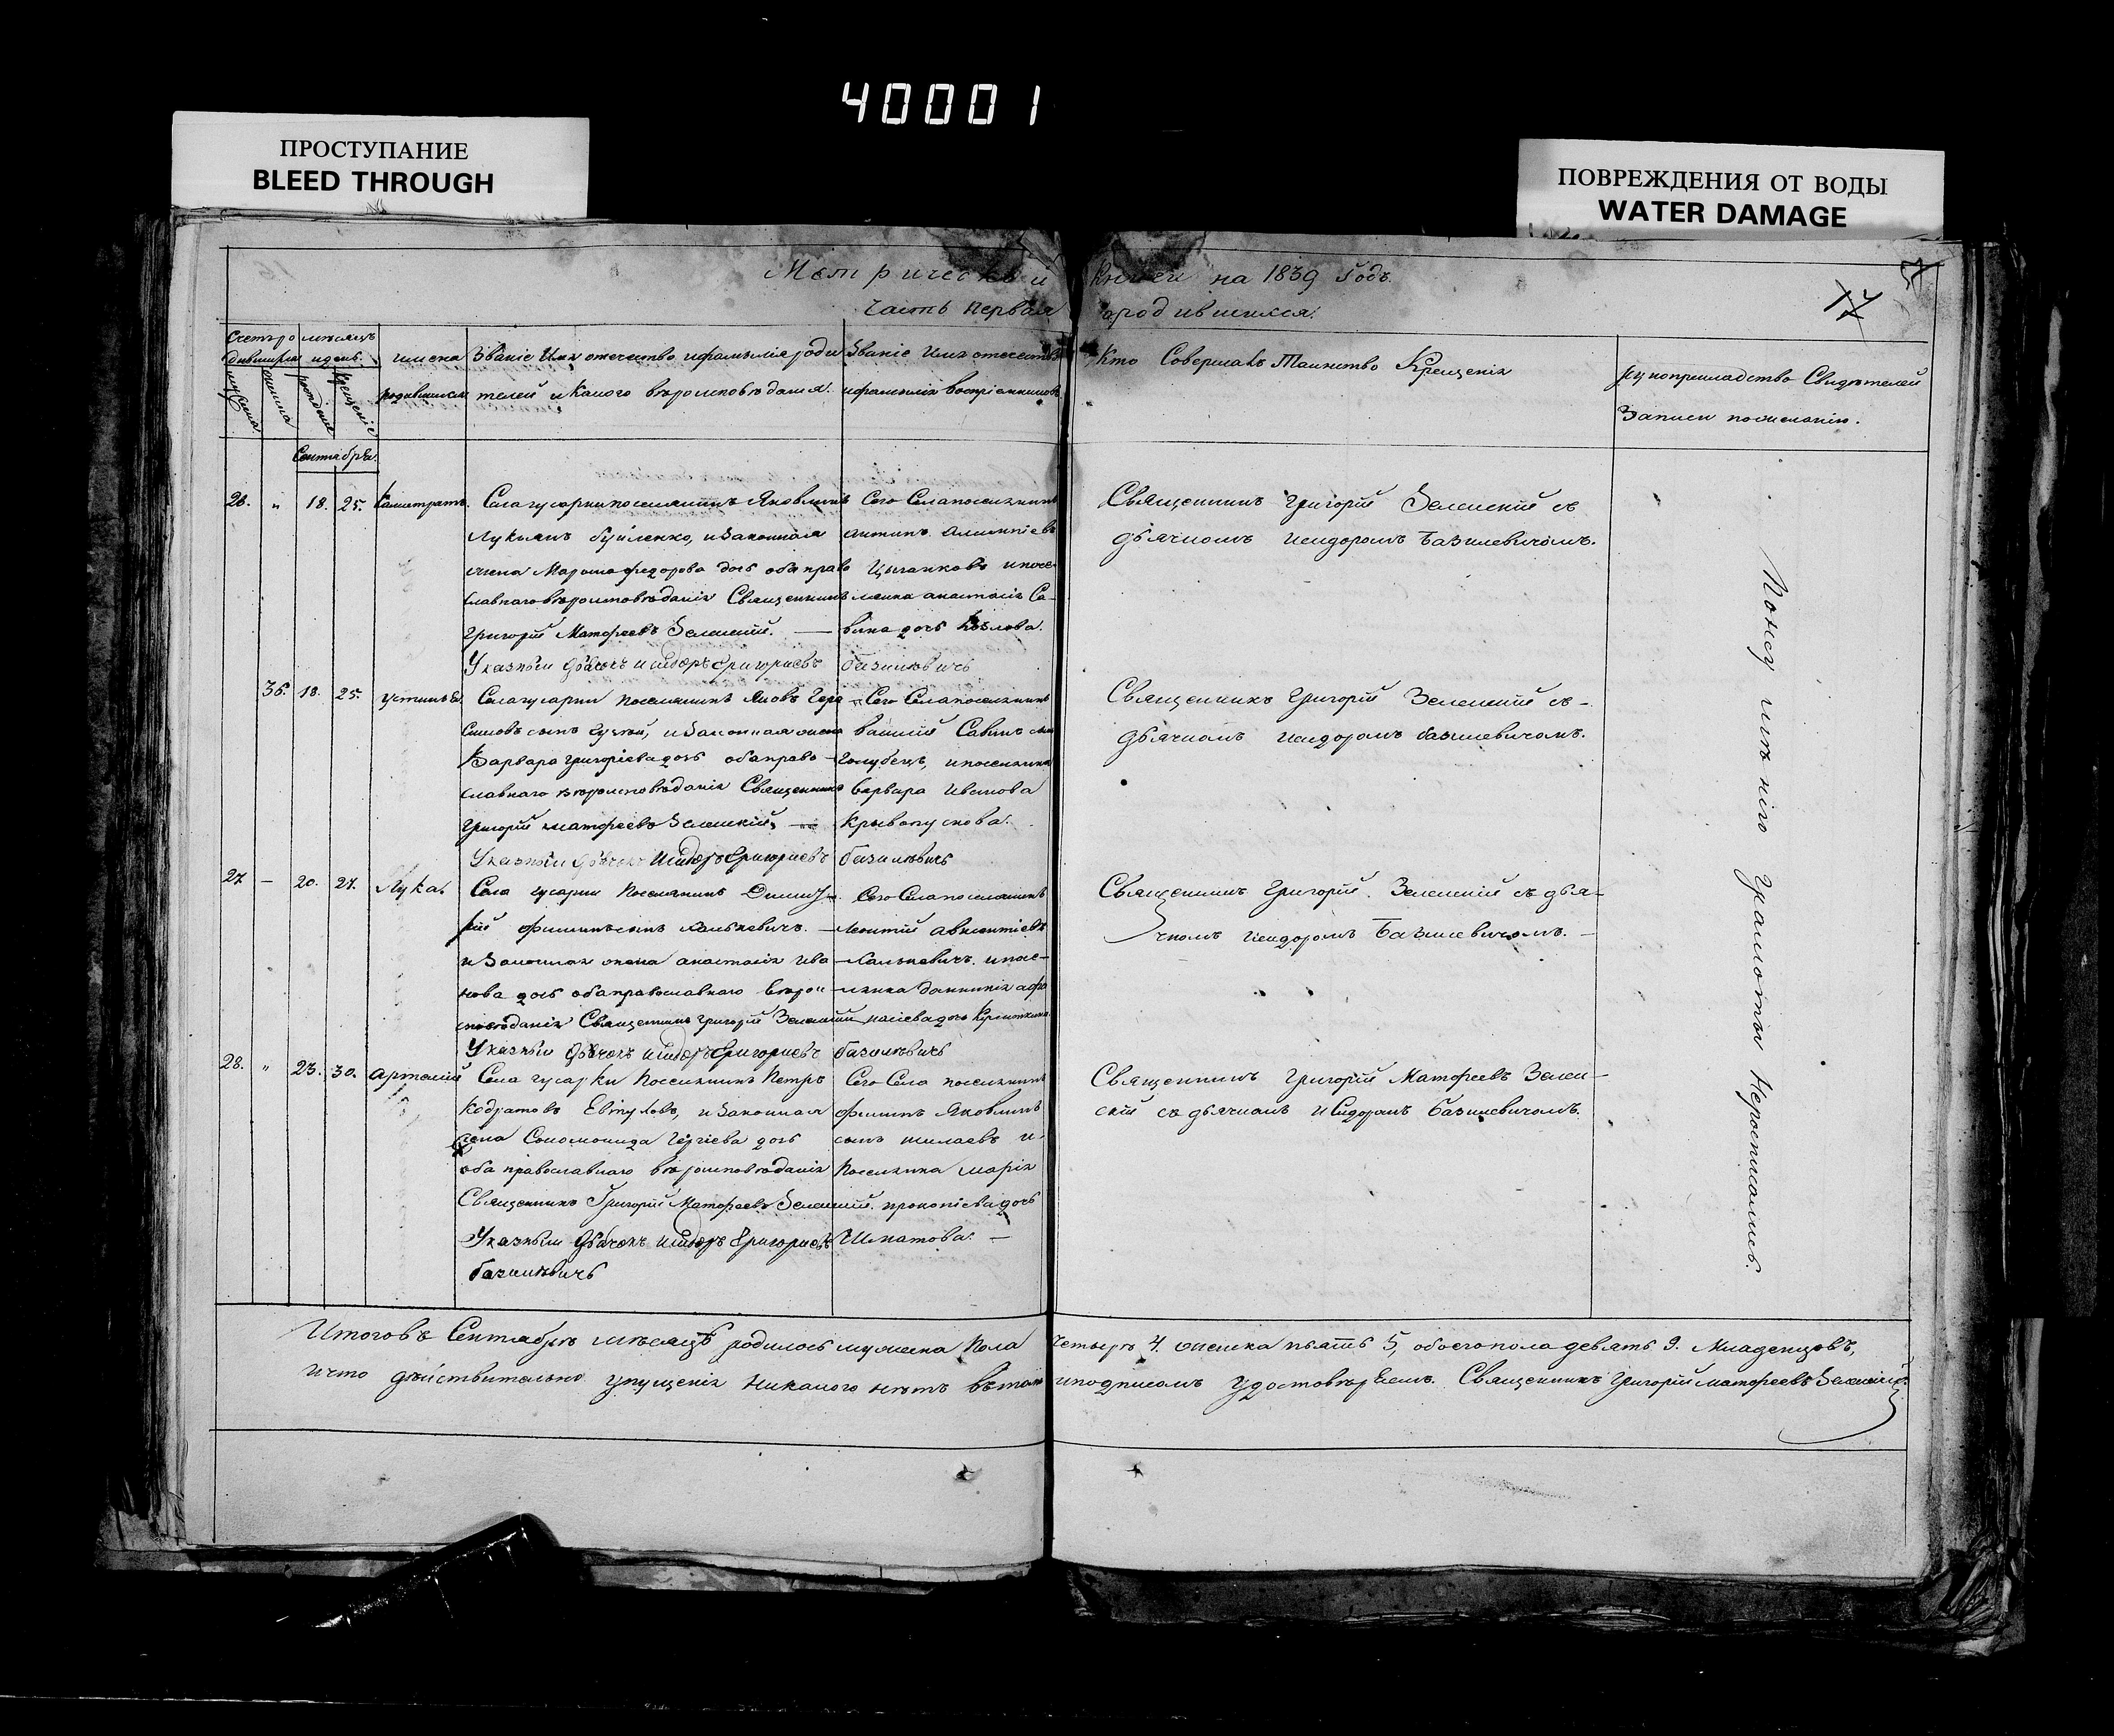 40001
ПРОСТУПАНИЕ
BLEED THROUGH
ПОВРЕЖДЕНИЯ ОТ ВОДЫ
WATER DAMAGE
Метрической Книги на 1839 Годъ.
Часть первая ародившихся.
17
Счетъ ро
дившихся
мѣсяцъ
и день.
мужеска
женска
рожденіе
крещеніе
имена
родившихся
Званіе Имя отечество, ифамилія роди
телей икакого вѣроисповѣданія.
Званіе Имя отечество
ифамилія воспріемниковъ
Кто Совершалъ Таинство Крещенія
рукоприкладство Свидѣтелей
Записи пожеланію.
Сентября.
26. „ 18. 25. Калистратъ.
Села гусарки поселянинъ Яковлинъ
Лукьянъ буйленко, изаконная
жена Марина федорова дочь оба право
славнаго вѣроисповѣданія Священникъ
Григорій Матфеевъ Зеленскій. —
Указный дьячокъ Исидоръ Григориевъ базилевичь
Сего Села поселянинъ
антипъ
Цыганковъ ипосе-
лянка анастасія Са-
вина дочь Козлова.
Священникъ Григорій Зеленскій съ
дьячкомъ Исидоромъ Базилевичомъ.
36. 18. 25. Устинья
Села гусарки поселянинъ Яковъ Гера
симовъ сынъ Гузій, изаконная жена
Варвара григоріева дочь обаправо
славнаго вѣроисповѣданія Священникъ
Григорій матфеевъ Зеленскій, —
Указный дьячокъ Исидоръ Григориевъ базилевичь
Сего Села поселянинъ
василій Савинъ сынъ
Голубецъ, ипоселянка
варвара Иванова
Кривопускова.
Священникъ Григорій Зеленскій съ-
дьячкомъ Исидоромъ базилевичомъ.
27 — 20. 27. Лука.
Села гусарки Поселянинъ Димит
рій филипъ сынъ Халькевичъ. —
изаконная жена анастасія Ива
нова дочь обаправославнаго вѣрои
сповѣданія Священникъ Григорій Зеленскій
Указный дьячокъ Исидоръ Григориевъ базилевичь
Сего Села поселянинъ
Леонтій авксентіевъ
Халькевичъ. ипосе-
лянка
Священникъ Григорій. Зеленскій съ дья-
чкомъ Исидоромъ Базилевичомъ. —
28. „ 23. 30. Артемій
Села гусарки Поселянинъ Петръ
Кодратовъ Евтуховъ, изаконная
жена Соломонида
оба православнаго вѣроисповѣданія
Священникъ Григорій Матфеевъ Зеленскій.
Указный дьячокъ Исидоръ Григориевъ
базилевичь
Сего Села поселянинъ
филипъ Яковлинъ
сынъ и-
Поселянка марія
прокопіева дочь
Шпатова. —
Священникъ Григорій Матфеевъ Зелен-
скій съ дьячкомъ Исидоромъ базилевичомъ.
Понеумѣнію Грамоты Нерасписались.
Итоговъ Сентябрѣ мѣсяцѣ родилось мужеска Пола Четырѣ 4. женска пять 5, обоегопола девять 9. Младенцовъ,
ичто дѣйствительно упущенія никакого нѣтъ вътомъ иподписомъ Удостовѣряемъ. Священникъ Григорій матфеевъ Зеленскій